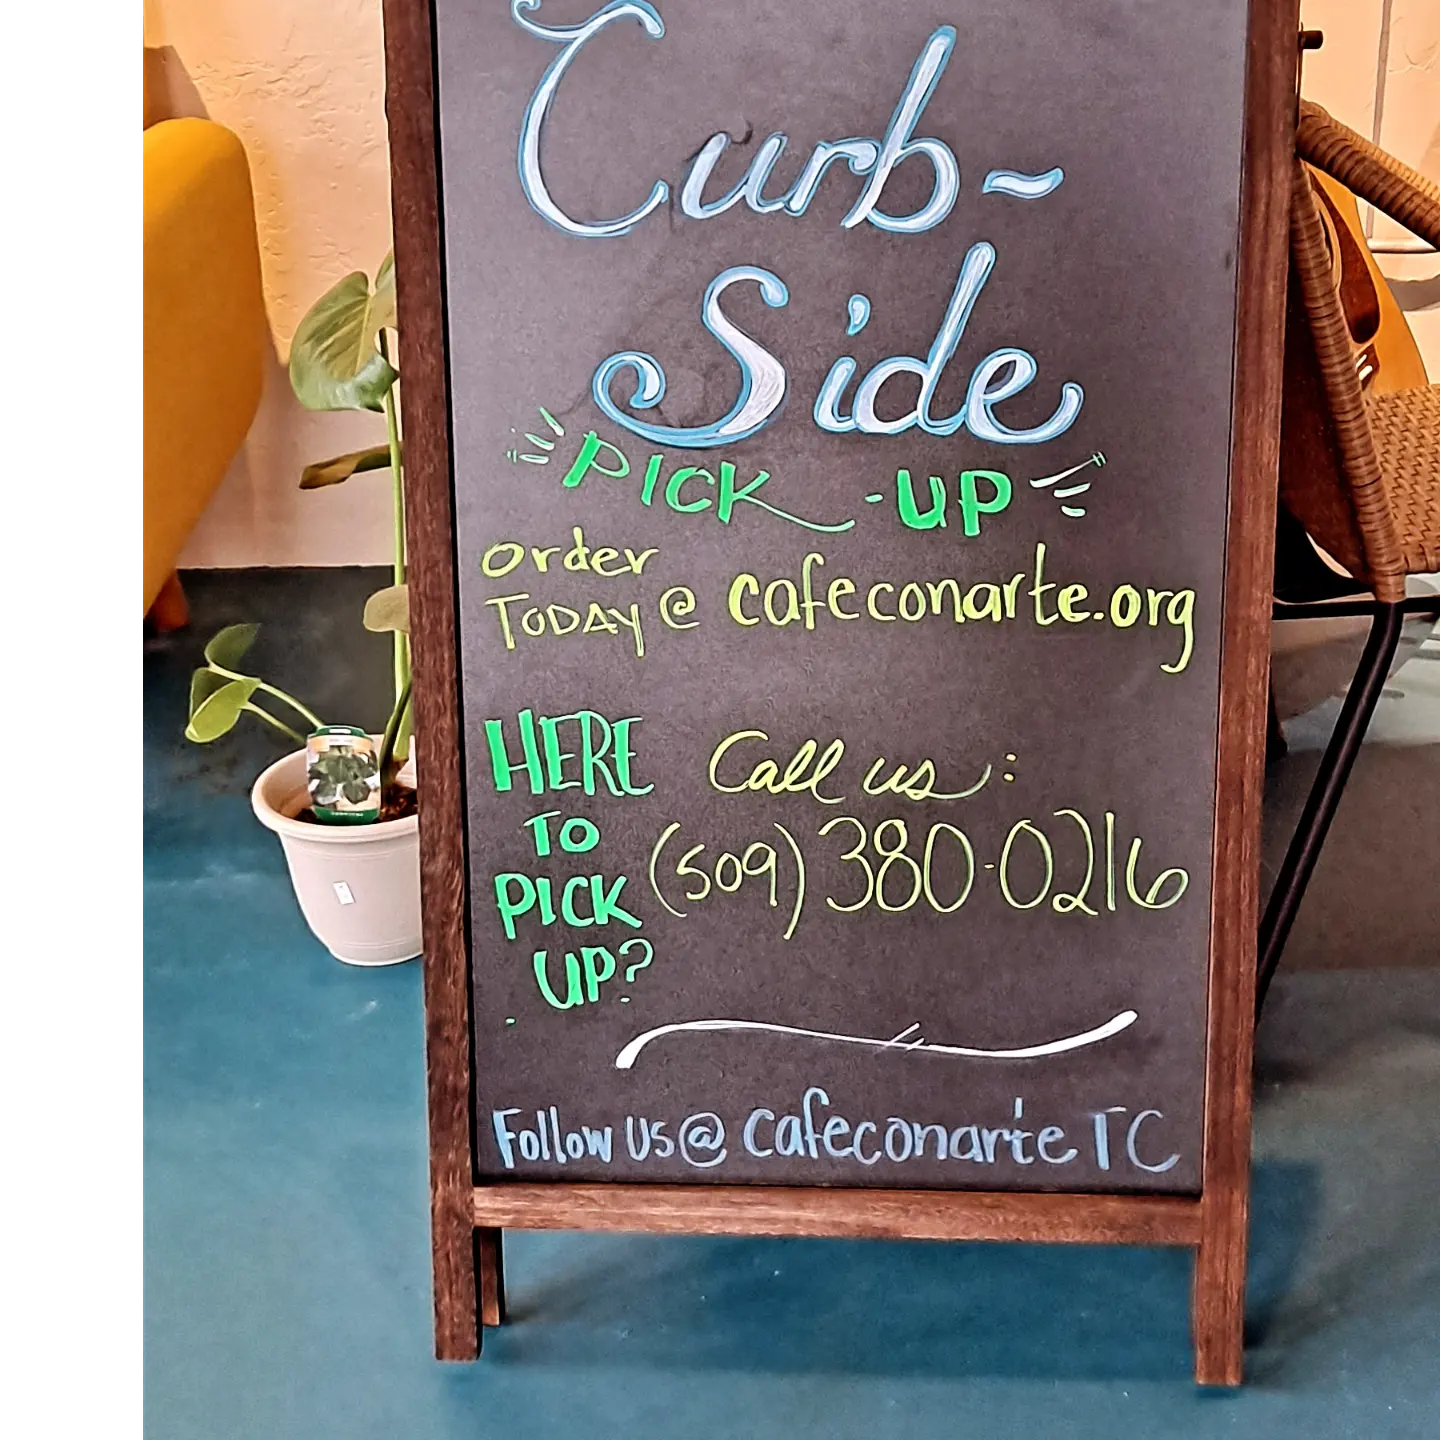 Curb-
Side
PICK-UP
Order
TODAY @ cafeconarte.org
HERE
TO
PICK
UP?
Call us:
(509) 380-0216
Follow Us @ cafeconarteTC